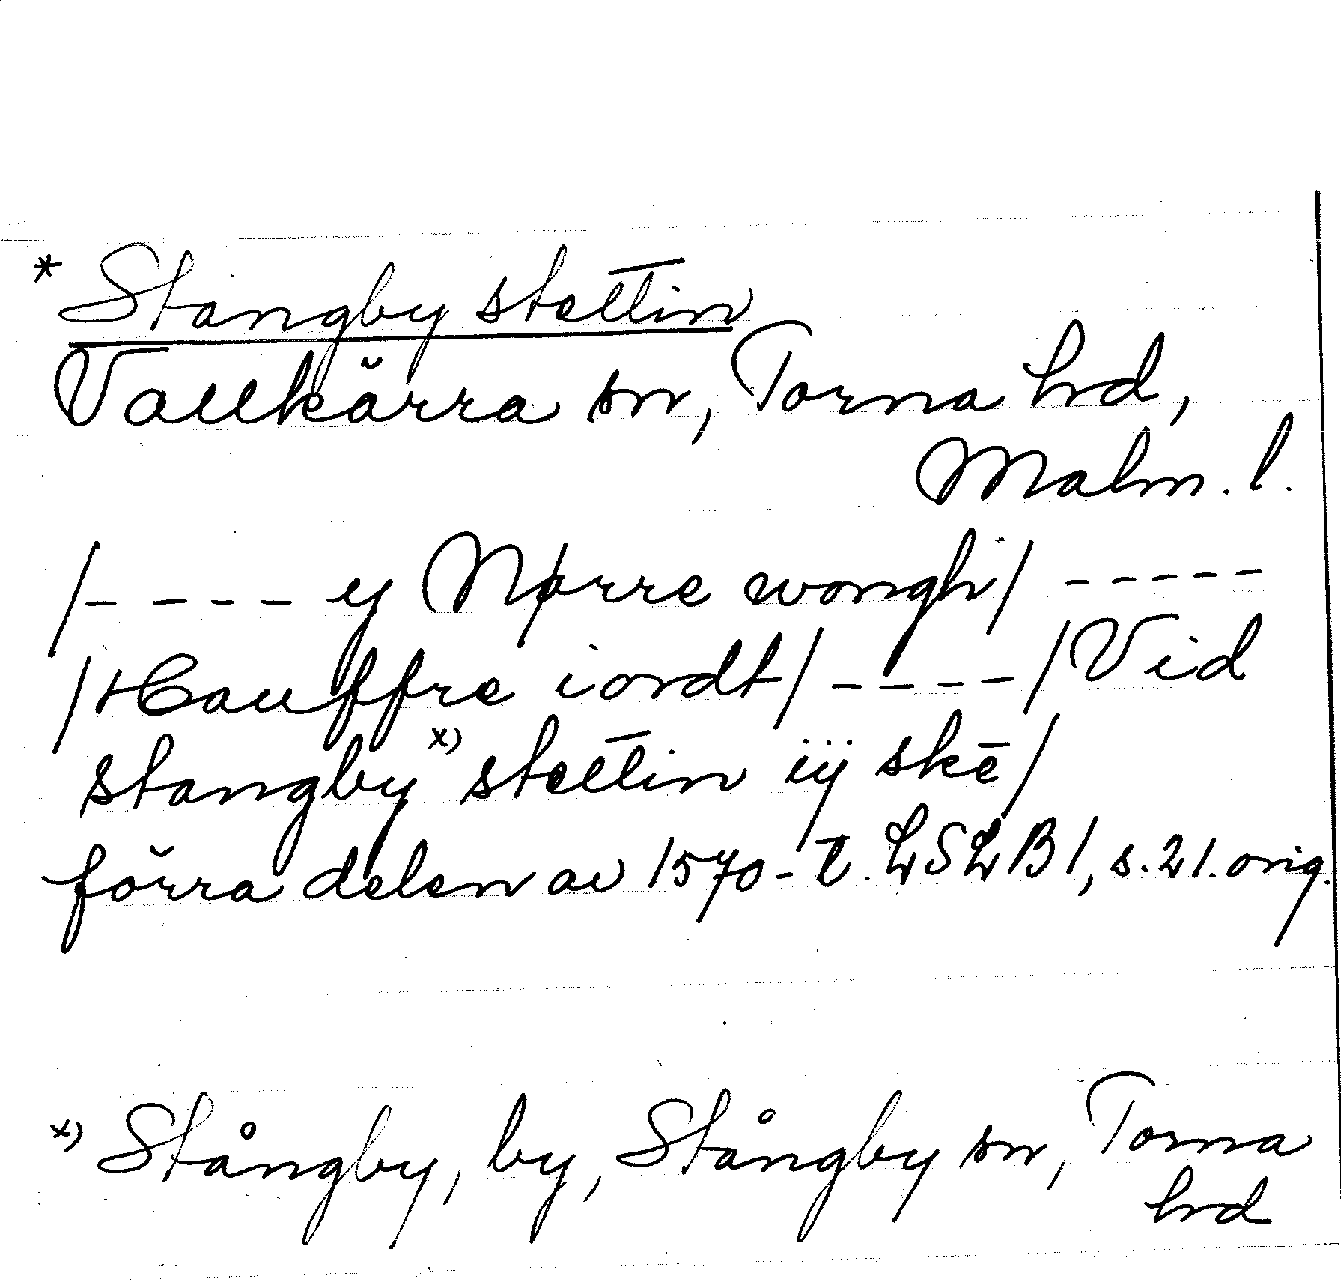 * Stangby stettin
Vallkärra sn, Torna hrd,
Malm. l.
/- - - - y Nørre wongh/ - - - - -
/Hauffre iordt/ - - - - /Vid
stangby x) stettin iij skē/
förra delen av 1570-t. LSLB1, s.21. orig.
x) Stångby, by, Stångby sn, Torna
hrd